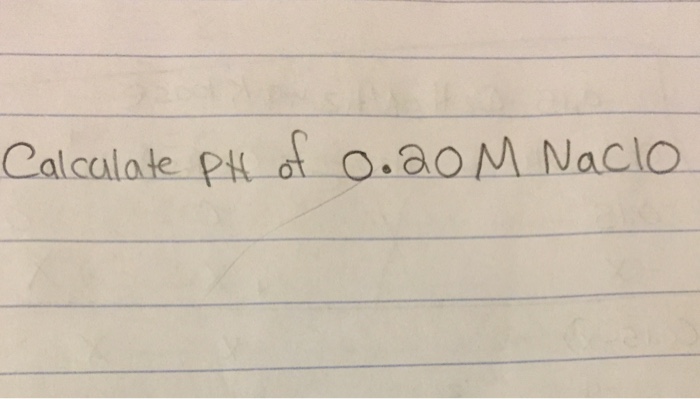 Calculate pH of 0.20M NaClO